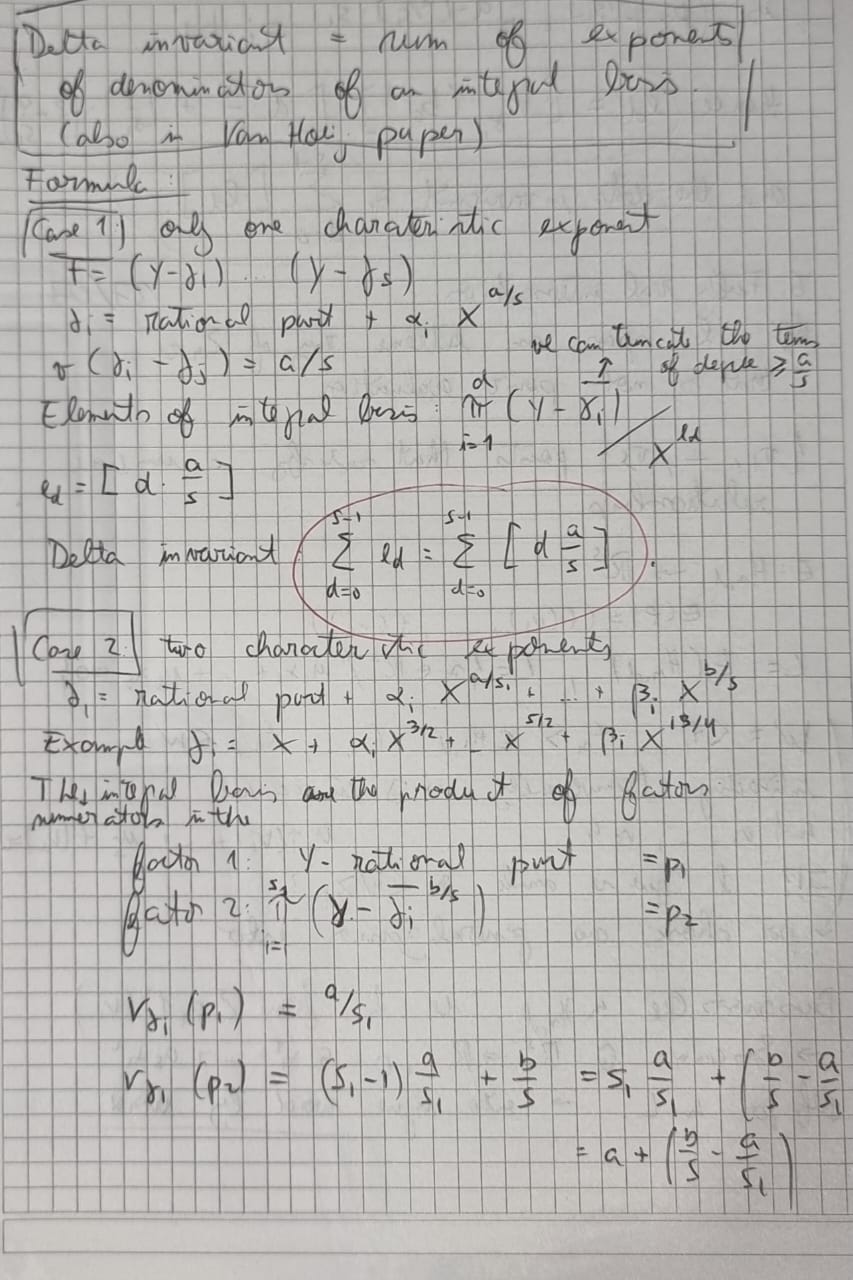 Delta invariant = num of exponents
of denominators of an integral basis.
(also in Van Hoeij paper)
Formula:
Case 1: only one charateristic exponent
F = (Y-γ₁) (Y-γs)
γᵢ = rational part + αᵢ X^{a/s}
v(γᵢ - γⱼ) = a/s
we can truncate the terms
of degree ≥ a/s
Elements of integral basis: ∏_{i=1}^{d} (Y - γ̅ᵢ) / X^{e_d}
e_d = [d · a/s]
Delta invariant ∑_{d=0}^{s-1} e_d = ∑_{d=0}^{s-1} [d a/s].
Case 2: two characteristic exponents
γᵢ = rational part + αᵢ X^{a/s₁} + ... + βᵢ X^{b/s}
Example γᵢ = X + αᵢ X^{3/2} + - X^{5/2} + βᵢ X^{13/4}
The integral basis are the product of fators:
numerators in the
factor 1: Y - rational part = p₁
fator 2: ∏_{i=1}^{s₁} (Y - γ̅ᵢ^{b/s}) = p₂
v_{γ₁}(p₁) = a/s₁
v_{γ₁}(p₂) = (s₁-1) a/s₁ + b/s = s₁ a/s₁ + (b/s - a/s₁
= a + (b/s - a/s₁)